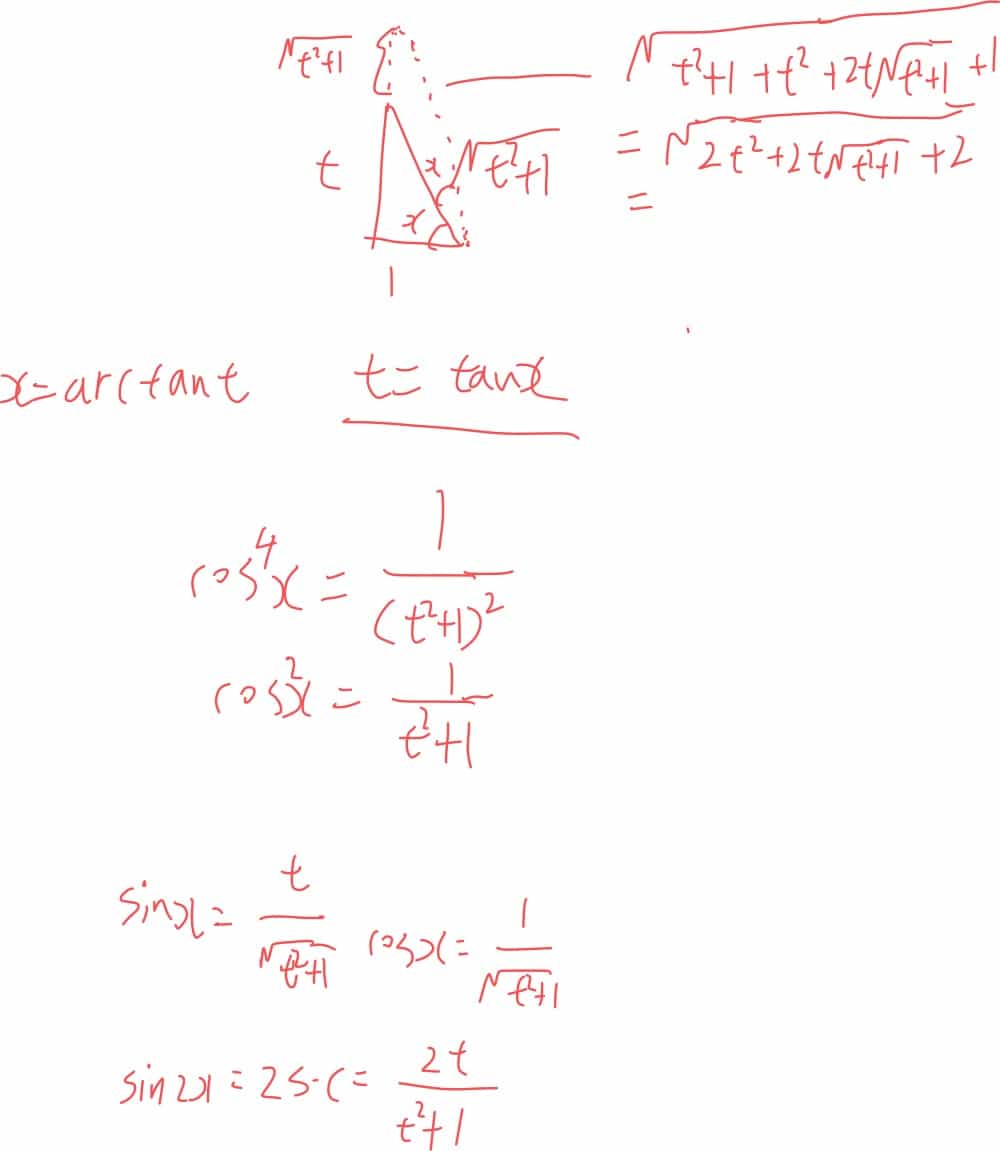 √(t²+1)
√(t²+1+t²+2t√(t²+1)+1)
t
x
√(t²+1)
= √(2t²+2t√(t²+1)+2)
x
=
1
x=arctant t=tanx
cos⁴x = 1/(t²+1)²
cos²x = 1/(t²+1)
sinx = t/√(t²+1) cosx = 1/√(t²+1)
sin2x = 2s·c = 2t/(t²+1)